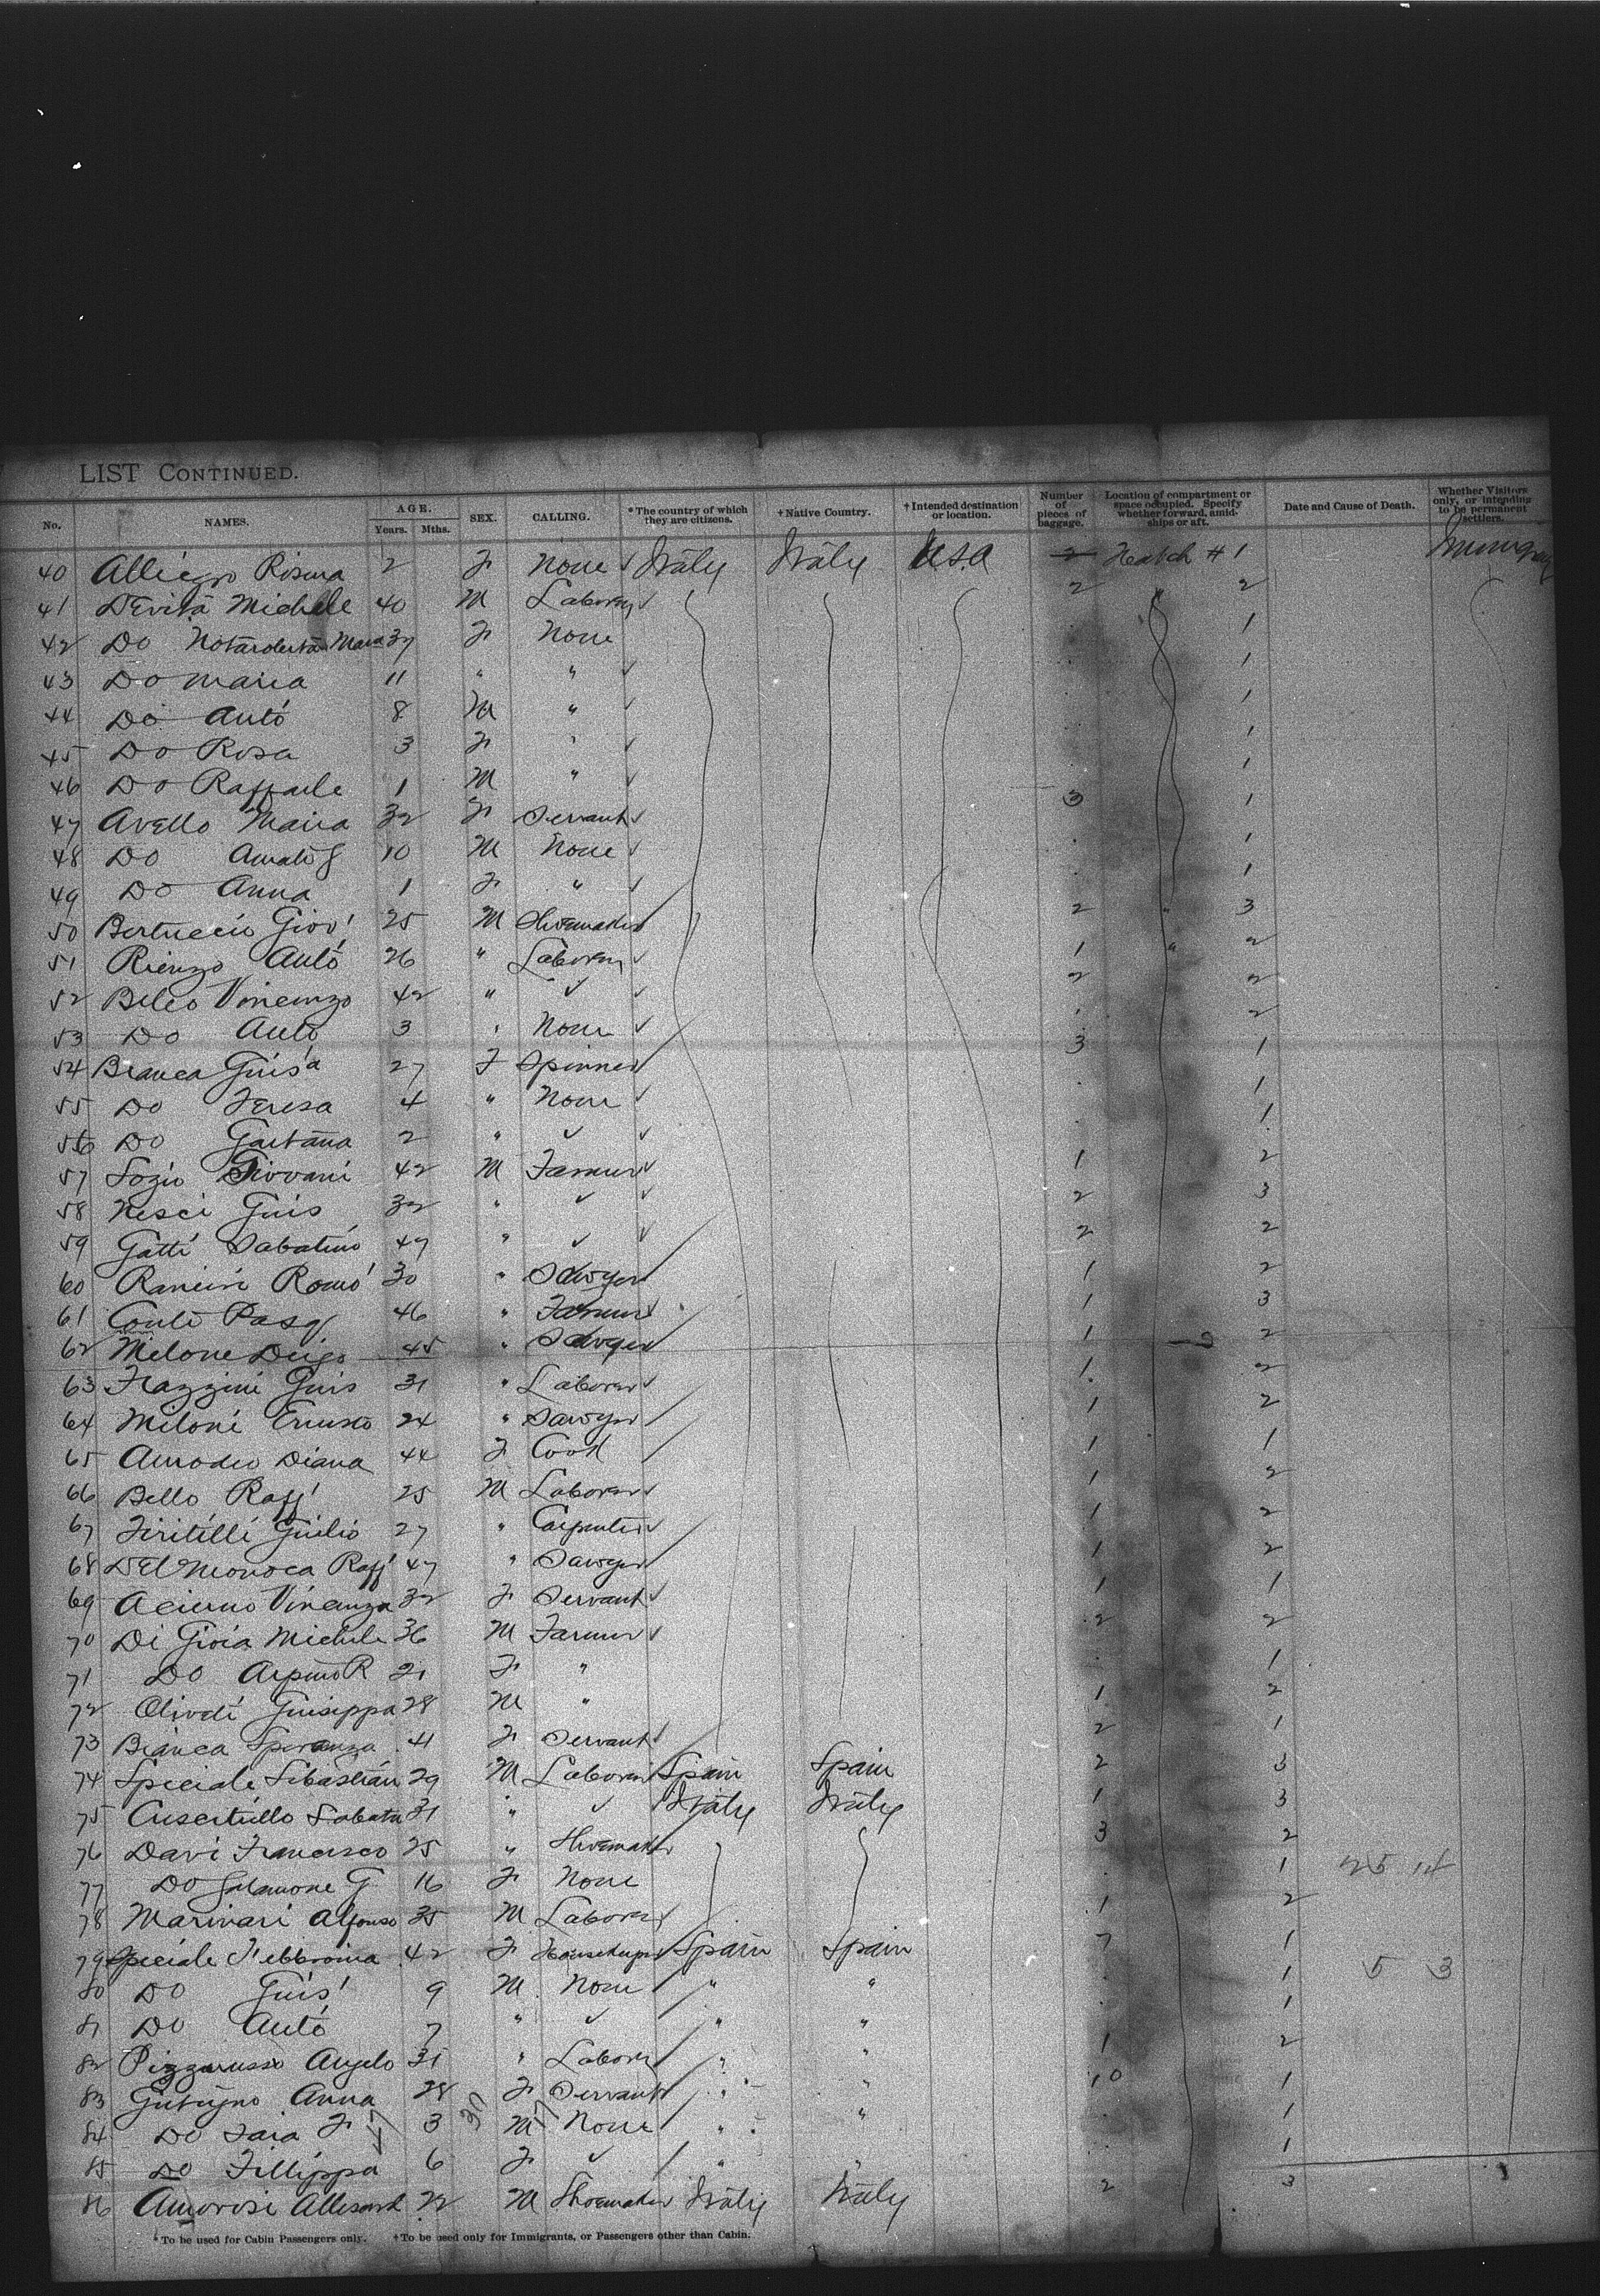 LIST CONTINUED.
No. NAMES. AGE. Years. Mths. SEX. CALLING. *The country of which they are citizens. †Native Country. †Intended destination or location. Number of pieces of baggage. Location of compartment or space occupied. Specify whether forward, amidships or aft. Date and Cause of Death. Whether Visitors only, or intending to be permanent settlers.
40 Rosina 2 F None Italy Italy U.S.A 2 Hatch # 1
41 DEvita Michele 40 M 2 " 2
42 Do 37 F None 1
43 Do Maria 11 " " 1
44 Do Antó 8 M " 1
45 Do Rosa 3 F " 1
46 Do Raffaele 1 M " 1
47 Avello Maria 32 F Servant 3 1
48 Do 10 M None 1
49 Do Anna 1 F " 1
50 Bertuccio Giov' 25 M Shoemaker 2 " 3
51 Rienzo Antó 26 " 1 " 2
52 Vincenzo 42 " 2 2
53 Do Antó 3 " None 2
54 Bianca Guis'a 27 F Spinner 3 1
55 Do Teresa 4 " None 1
56 Do Gaetana 2 " 1
57 Sozio Giovani 42 M Farmer 1 2
58 Nesci Guis 32 " 2 3
59 Gatti Sabatino 47 " 2 2
60 Romó 30 " Sawyer 1 2
61 Conte Pasq 46 " Farmer 1 3
62 Milone 45 " Sawyer 1 2
63 Frazzini Guis 31 " Laborer 1 2
64 Miloni Ernesto 24 " Sawyer 1 2
65 Amodeo Diana 44 F Cook 1 1
66 Bello Raff' 25 M Laborer 1 2
67 Guilio 27 " Carpenter 1 2
68 DElMonoca Raff' 47 " Sawyer 1 2
69 Acierno Vincenza 32 F Servant 1 1
70 Di Gioia Michele 36 M Farmer 2 2
71 Do R 21 F " 1
72 Guiseppa 28 M " 1 2
73 Bianca Speranza 41 F Servant 2 1
74 Speciale Sibastian 29 M Laborer Spain Spain 2 3
75 31 " Italy Italy 1 3
76 Davi Francesco 25 " Shoemaker 3 2
77 Do Salamone G 16 F None 1
78 Marinari Alfonso 35 M Laborer 1 2
79 Speciale Febbronia 42 F Spain Spain 7 1
80 Do Guis' 9 M None " " 1 5 3
81 Do Antó 7 " " " 1
82 Pizzarusso Angelo 31 " Laborer " " 1 2
83 Anna 28 F Servant " " 10 1
84 Do F 3 M None " " 1
85 Do Fillippa 6 F " " 1
86 Amorosi M Shoemaker Italy Italy 2 3
* To be used for Cabin Passengers only. † To be used only for Immigrants, or Passengers other than Cabin.